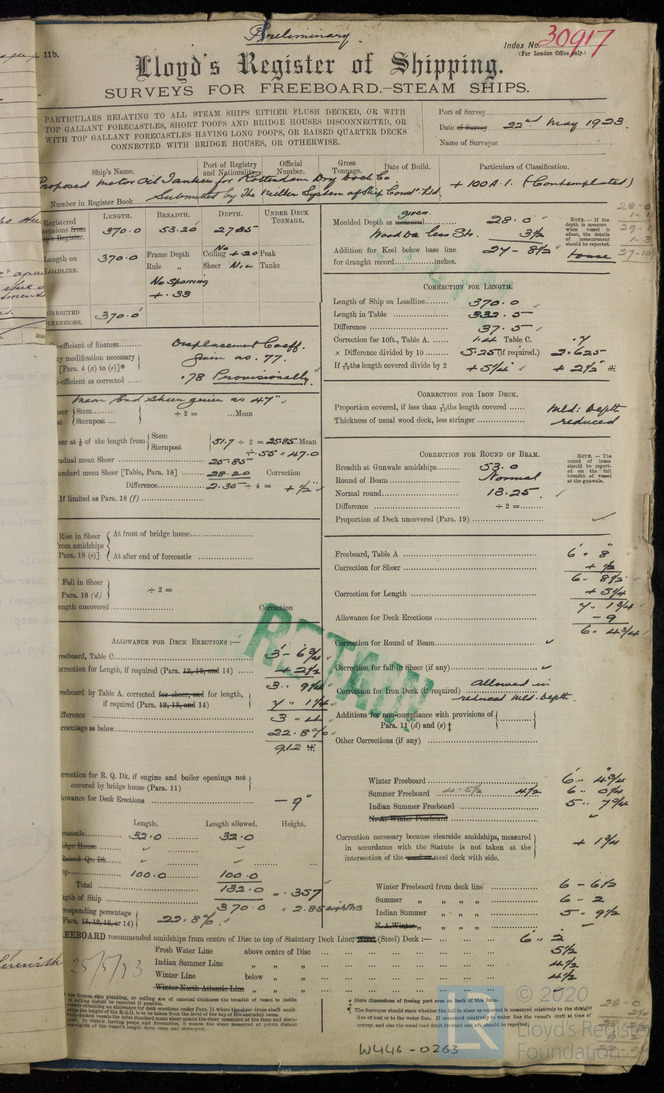 Preliminary.
11b.
Index No. 30917
(For London Office only.)
Lloyd's Register of Shipping.
SURVEYS FOR FREEBOARD.—STEAM SHIPS.
PARTICULARS RELATING TO ALL STEAM SHIPS EITHER FLUSH DECKED, OR WITH
TOP GALLANT FORECASTLES, SHORT POOPS AND BRIDGE HOUSES DISCONNECTED, OR
WITH TOP GALLANT FORECASTLES HAVING LONG POOPS, OR RAISED QUARTER DECKS
CONNECTED WITH BRIDGE HOUSES, OR OTHERWISE.
Port of Survey
Date of Survey 22nd May 1923.
Name of Surveyor
Ship's Name. Port of Registry and Nationality. Official Number. Gross Tonnage. Date of Build. Particulars of Classification.
Proposed Motor Oil Tanker for Rotterdam Dry Dock Co
Number in Register Book Submitted by The Millar System of Ship Const Ltd.
+ 100 A.1. (Contemplated)
LENGTH. BREADTH. DEPTH. UNDER DECK TONNAGE.
Registered 370.0 53.20 27.85
Length on LOADLINE. 370.0 Frame Depth Ceiling +.20 Peak
Rule „ Sheer Tanks
No Sparring
+ .33
CORRECTED DIMENSIONS. 370.0
Moulded Depth as measured given. 28.0
3½
Addition for Keel below base line 27 - 8½
for draught record inches.
NOTE.—If the depth is measure when vessel is afloat, the details of measurement should be reported.
CORRECTION FOR LENGTH.
Length of Ship on Loadline 370.0
Length in Table 332.5
Difference 37.5
Correction for 10ft., Table A. 1.4 Table C. .7
× Difference divided by 10 5.25 (if required.) 2.625
If 6/10ths length covered divide by 2 + 5¼ + 2½
-efficient of fineness Displacement Coeff.
y modification necessary given as .77.
[Para. 4 (a) to (e)]*
-efficient as corrected .78 Provisionally
CORRECTION FOR IRON DECK.
Proportion covered, if less than 7/10ths length covered Mld: Depth
Thickness of usual wood deck, less stringer reduced
Mean End Sheer given as 47"
Stem
Sternpost ÷ 2 = Mean
eer at ⅛ of the length from Stem Sternpost 51.7 ÷ 2 = 25.85 Mean
÷ .55 = 47.0
adual mean Sheer 25.85
andard mean Sheer [Table, Para. 18] 28.20 Correction
Difference 2.35 ÷ 4 = + ½
If limited as Para. 18 (f)
CORRECTION FOR ROUND OF BEAM.
Breadth at Gunwale amidships 53.0
Round of Beam Normal
Normal round 13.25
Difference ÷ 2 =
Proportion of Deck uncovered (Para. 19)
NOTE.—The round of beam should be reported on the full breadth of vessel at the gunwale.
Rise in Sheer from amidships [Para. 18 (e)]
At front of bridge house
At after end of forecastle
Fall in Sheer
Para. 18 (d) ÷ 2 =
ength uncovered Correction
Freeboard, Table A 6" 8
Correction for Sheer + ½
6" 8½
Correction for Length + 5¼
7" 1¾
Allowance for Deck Erections - 9
6" 4¾
Correction for Round of Beam
Correction for fall in Sheer (if any)
Correction for Iron Deck (if required) allowed in
reduced Mld. Depth
Additions for non-compliance with provisions of
Para. 11 (d) and (e) ‡
Other Corrections (if any)
RETAIN
ALLOWANCE FOR DECK ERECTIONS:—
eeboard, Table C. 3 - 6¾
orrection for Length, if required (Para. 12, 13, and 14) + 2½
3" 9¼
eeboard by Table A. corrected for sheer, and for length,
if required (Para. 12, 13, and 14) 7" 1¾
ifference 3" 4½
ercentage as below 22.8%
9.12
rrection for R. Q. Dk. if engine and boiler openings not
covered by bridge house (Para. 11)
lowance for Deck Erections - 9"
Length. Length allowed. Height.
32.0 32.0
idge House
Raised Qr. Dk.
100.0 100.0
Total 132.0 = .357
ngth of Ship 370.0 = 2.85 eighths
responding percentage
Para. 11, 12, 13, or 14) 22.8%
Winter Freeboard 6" 4¾
Summer Freeboard 4-5½ 4½ 6" 0¼
Indian Summer Freeboard 5" 7¾
N. A. Winter Freeboard
Correction necessary because clearside amidships, measured
in accordance with the Statute is not taken at the + 1¾
intersection of the wood or steel deck with side.
Winter Freeboard from deck line 6 - 6½
Summer „ „ „ „ 6 - 2
Indian Summer „ „ „ 5 - 9½
N. A. Winter „ „ „
EEBOARD recommended amidships from centre of Disc to top of Statutory Deck Line, Wood (Steel) Deck:— 6" 2
Fresh Water Line above centre of Disc 5½
Indian Summer Line „ „ 4½
Winter Line below „ „ 4½
Winter North Atlantic Line „ „
25/5/23
* State dimensions of freeing port area on back of this form.
The Surveyor should state whether the fall in sheer is measured relatively to the straight
line of keel or to the water line. If measured relatively to water line the vessel's draft at time of
survey, and also the usual load draft forward and aft, should be reported.
W446-0263
© 2020
Lloyd's Register
Foundation